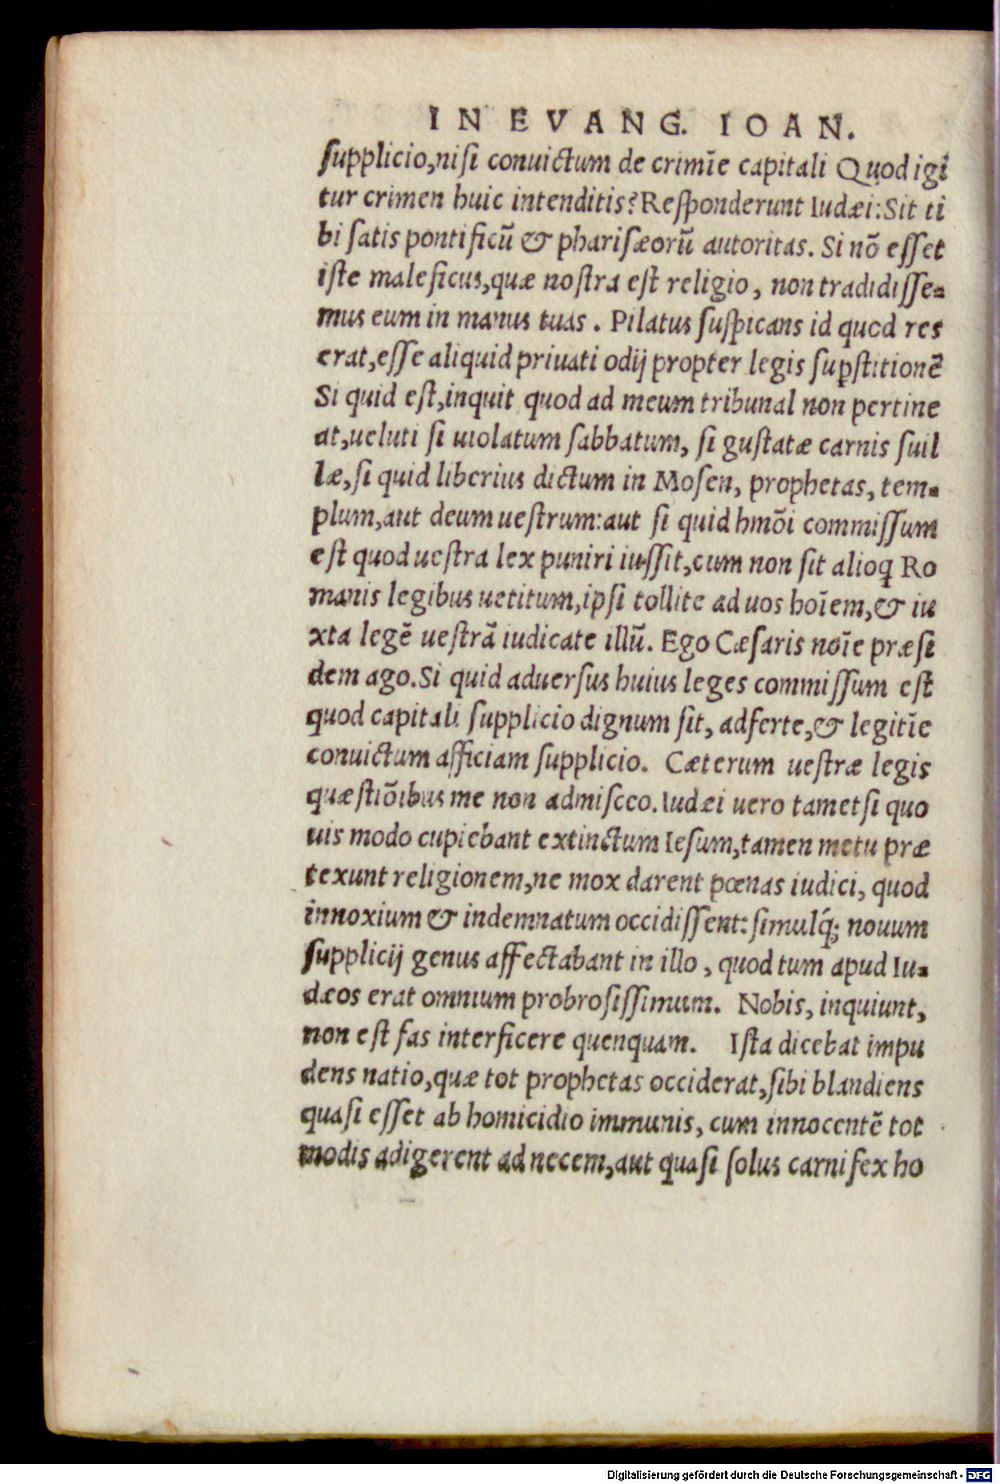 IN EVANG. IOAN.
supplicio,nisi conuictum de crimīe capitali Quod igī
tur crimen huic intenditis?Responderunt Iudæi:Sit ti
bi satis pontificū & pharisæorū autoritas. Si nō esset
iste maleficus,quæ nostra est religio, non tradidisse=
mus eum in manus tuas. Pilatus suspicans id quod res
erat,esse aliquid priuati odij propter legis suꝑstitionē
Si quid est,inquit quod ad meum tribunal non pertine
at,ueluti si uiolatum sabbatum, si gustatæ carnis suil
læ,si quid liberius dictum in Mosen, prophetas, tem=
plum,aut deum uestrum:aut si quid hmōi commissum
est quod uestra lex puniri iussit,cum non sit alioq̨ Ro
manis legibus uetitum,ipsi tollite ad uos hoīem,& iu
xta legē uestrā iudicate illū. Ego Cæsaris noīe præsi
dem ago.Si quid aduersus huius leges commissum est
quod capitali supplicio dignum sit, adferte,& legitīe
conuictum afficiam supplicio. Cæterum uestræ legis
quæstiōibus me non admisceo.Iudæi uero tametsi quo
uis modo cupiebant extinctum Iesum,tamen metu præ
texunt religionem,ne mox darent pœnas iudici, quod
innoxium & indemnatum occidissent: simulq́; nouum
supplicij genus affectabant in illo, quod tum apud Iu=
dæos erat omnium probrosissimum. Nobis, inquiunt,
non est fas interficere quenquam. Ista dicebat impu
dens natio,quæ tot prophetas occiderat,sibi blandiens
quasi esset ab homicidio immunis, cum innocentē tot
modis adigerent ad necem,aut quasi solus carnifex ho
Digitalisierung gefördert durch die Deutsche Forschungsgemeinschaft - DFG